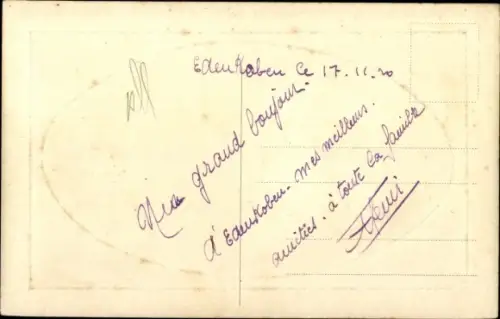 Edenkoben le 17.11.20
Un grand bonjour.
d'Edenkoben. mes meilleurs.
amitiés. à toute la famille